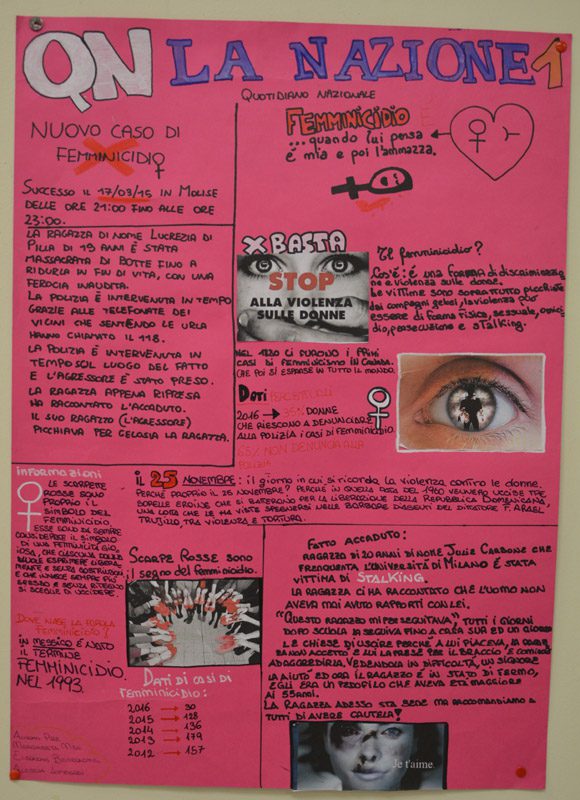 QN LA NAZIONE 1
QUOTIDIANO NAZIONALE
NUOVO CASO DI
FEMMINICIDIO
SUCCESSO IL 17/03/15 IN MOLISE
DELLE ORE 21:00 FINO ALLE ORE
23:00.
LA RAGAZZA DI NOME LUCREZIA DI
PILLA DI 19 ANNI È STATA
MASSACRATA DI BOTTE FINO A
RIDURLA IN FIN DI VITA, CON UNA
FEROCIA INAUDITA.
LA POLIZIA È INTERVENUTA IN TEMPO
GRAZIE ALLE TELEFONATE DEI
VICINI CHE SENTENDO LE URLA
HANNO CHIAMATO IL 118.
LA POLIZIA È INTERVENUTA IN
TEMPO SUL LUOGO DEL FATTO
E L'AGRESSORE È STATO PRESO.
LA RAGAZZA APPENA RIPRESA
HA RACCONTATO L'ACCADUTO.
IL SUO RAGAZZO (L'AGRESSORE)
PICCHIAVA PER GELOSIA LA RAGAZZA.
FEMMINICIDIO
...quando lui pensa
è mia e poi l'ammazza.
X BASTA
STOP
ALLA VIOLENZA
SULLE DONNE
Il femminicidio?
Cos'è: è una forma di discriminazio
ne e violenza sulle donne.
Le vittime sono soprattutto picchiate
dai compagni gelosi, la violenza può
essere di forma fisica, sessuale, omici
dio, persecuzione e stalking.
NEL 1220 CI FURONO I PRIMI
CASI DI FEMMINICISMO IN CANADA.
CHE POI SI ESPANSE IN TUTTO IL MONDO.
Dati PERCENTUALI
2016 → 35% DONNE
CHE RIESCONO A DENUNCIARE
ALLA POLIZIA I CASI DI FEMMINICIDIO.
65% NON DENUNCIA ALLA
POLIZIA
informazioni
LE SCARPETTE
ROSSE SONO
PROPRIO IL
SIMBOLO DEL
FEMMINICIDIO
ESSE SONO DA SEMPRE
CONSIDERATE IL SIMBOLO
DI UNA FEMMINILITÀ GIO
IOSA, CHE CIASCUNA DONNA
VUOLE ESPRIMERE LIBERA
MENTE E SENZA COSTRIZIONI
E CHE INVECE SEMPRE PIÙ
SPESSO E SENZA RITEGNO
SI SCEGLIE DI UCCIDERE.
DOVE NASCE LA PAROLA
FEMMINICIDIO?
IN MESSICO È NATO
IL TERMINE
FEMMINICIDIO.
NEL 1993.
il 25 NOVEMBRE: il giorno in cui si ricorda la violenza contro le donne.
PERCHÉ PROPRIO IL 25 NOVEMBRE? PERCHÈ IN QUELLA DATA DEL 1960 VENNERO UCCISE TRE
SORELLE EROINE CHE SI BATTERONO PER LA LIBERAZIONE DELLA REPUBBLICA DOMENICANA,
UNA LOTTA CHE LE HA VISTE SPEGNERSI NELLE BARBARE DEL DITTATORE
TRUJILLO, TRA VIOLENZA E TORTURA.
SCARPE ROSSE SONO
il segno del femminicidio.
DATI DI CASI DI
femminicidio:
2016 → 30
2015 → 128
2014 → 136
2013 → 179
2012 → 157
FATTO ACCADUTO:
RAGAZZA DI 20 ANNI DI NOME JULIE CARBONE CHE
FREQUENTA L'UNIVERSITÀ DI MILANO È STATA
VITTIMA DI STALKING.
LA RAGAZZA CI HA RACCONTATO CHE L'UOMO NON
AVEVA MAI AVUTO RAPPORTI CON LEI.
"QUESTO RAGAZZO MI PERSEGUITAVA", TUTTI I GIORNI
DOPO SCUOLA LA SEGUIVA FINO A CASA SUA ED UN GIORNO
LE CHIESE DI USCIRE PERCHÈ A LUI PIACEVA, LA RAGAZ
ZA NON ACCETTÒ E LUI LA PRESE PER IL BRACCIO E COMINCIÒ
AD AGGREDIRLA, VEDENDOLA IN DIFFICOLTÀ, UN SIGNORE
LA AIUTÒ ED ORA IL RAGAZZO È IN STATO DI FERMO,
EGLI ERA UN PEDOFILO CHE AVEVA ETÀ MAGGIORE
AI 55 ANNI.
LA RAGAZZA ADESSO STA BENE MA RACCOMANDIAMO A
TUTTI DI AVERE CAUTELA!
Je t'aime.